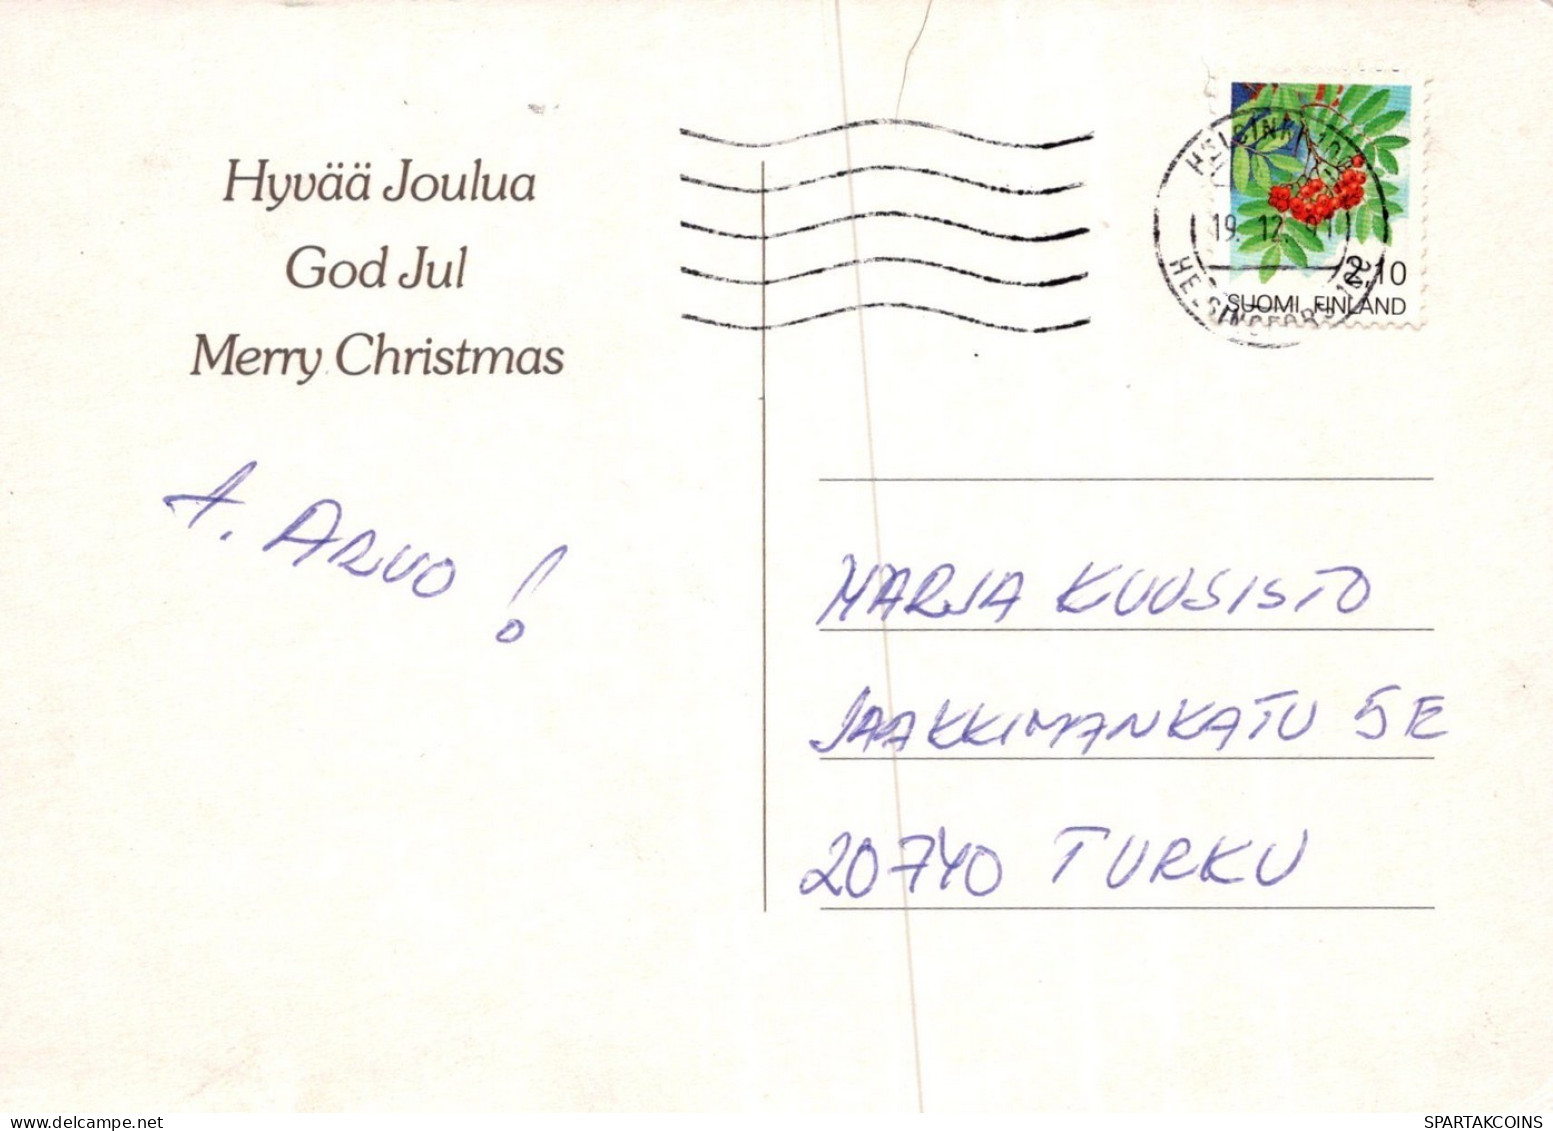 Hyvää Joulua
God Jul
Merry Christmas
T. ARVO!
HELSINKI
19.12.91
HELSINGFORS
2,10
SUOMI FINLAND
MARJA KUUSISTO
JAAKKIMANKATU 5E
20740 TURKU
SPARTAKCOINS